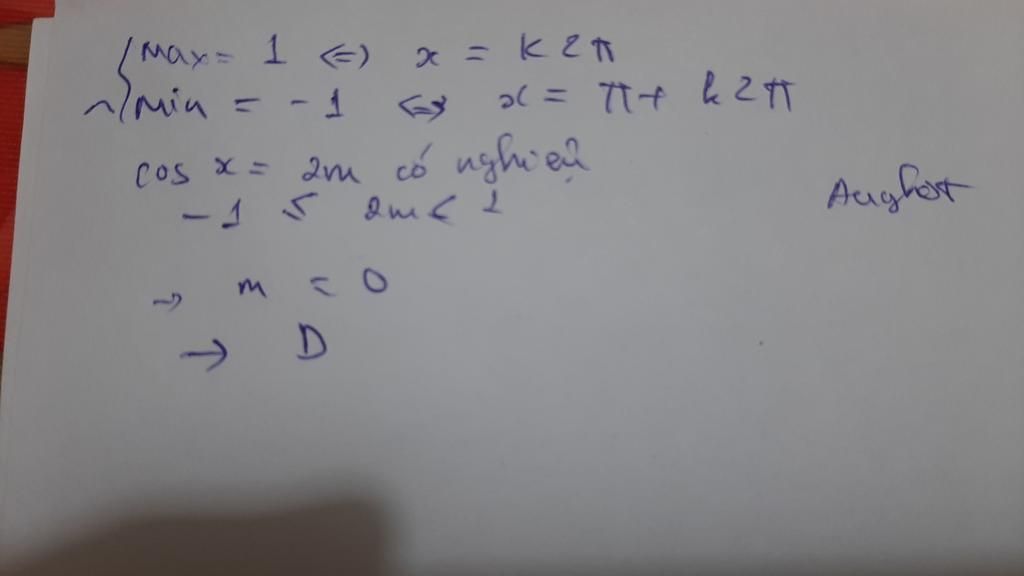 max = 1 <=> x = k2π
min = -1 <=> x = π + k2π
cos x = 2m có nghiệm
-1 ≤ 2m < 1
→ m = 0
→ D